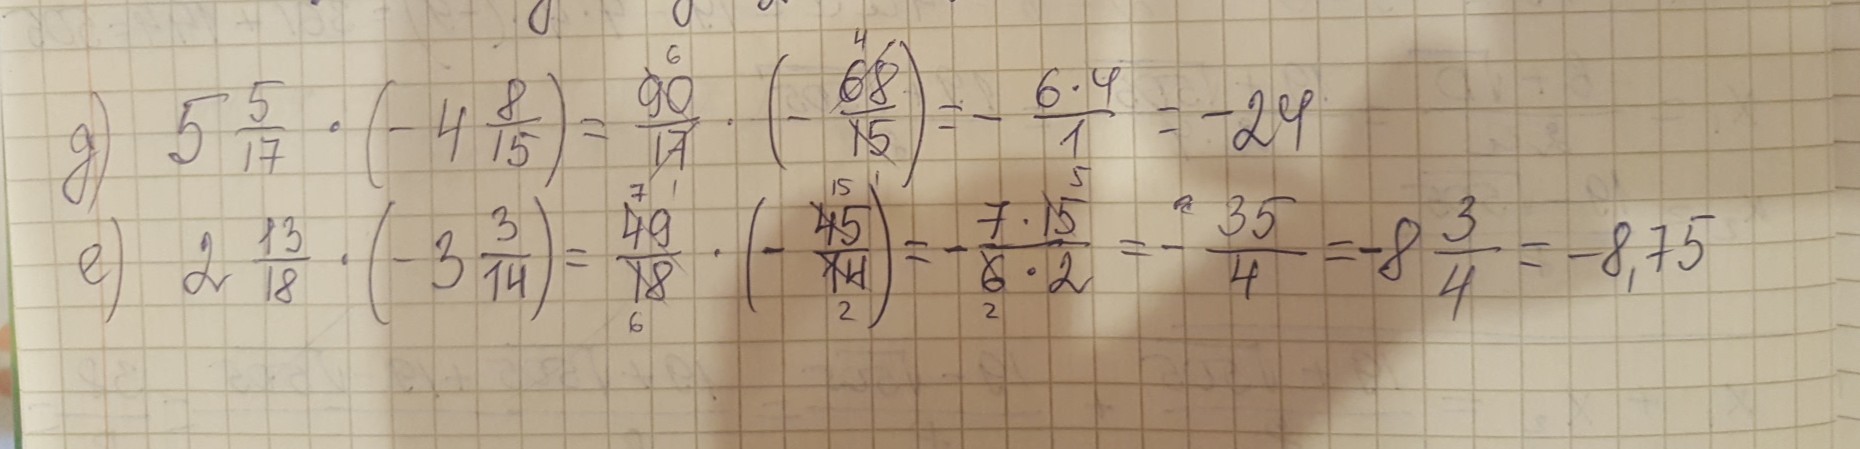 д) 5 5/17 · (- 4 8/15) = 90/17 · (- 68/15) = - 6·4/1 = -24
е) 2 13/18 · (- 3 3/14) = 49/18 · (- 45/14) = - 7·15/6·2 = - 35/4 = -8 3/4 = -8,75